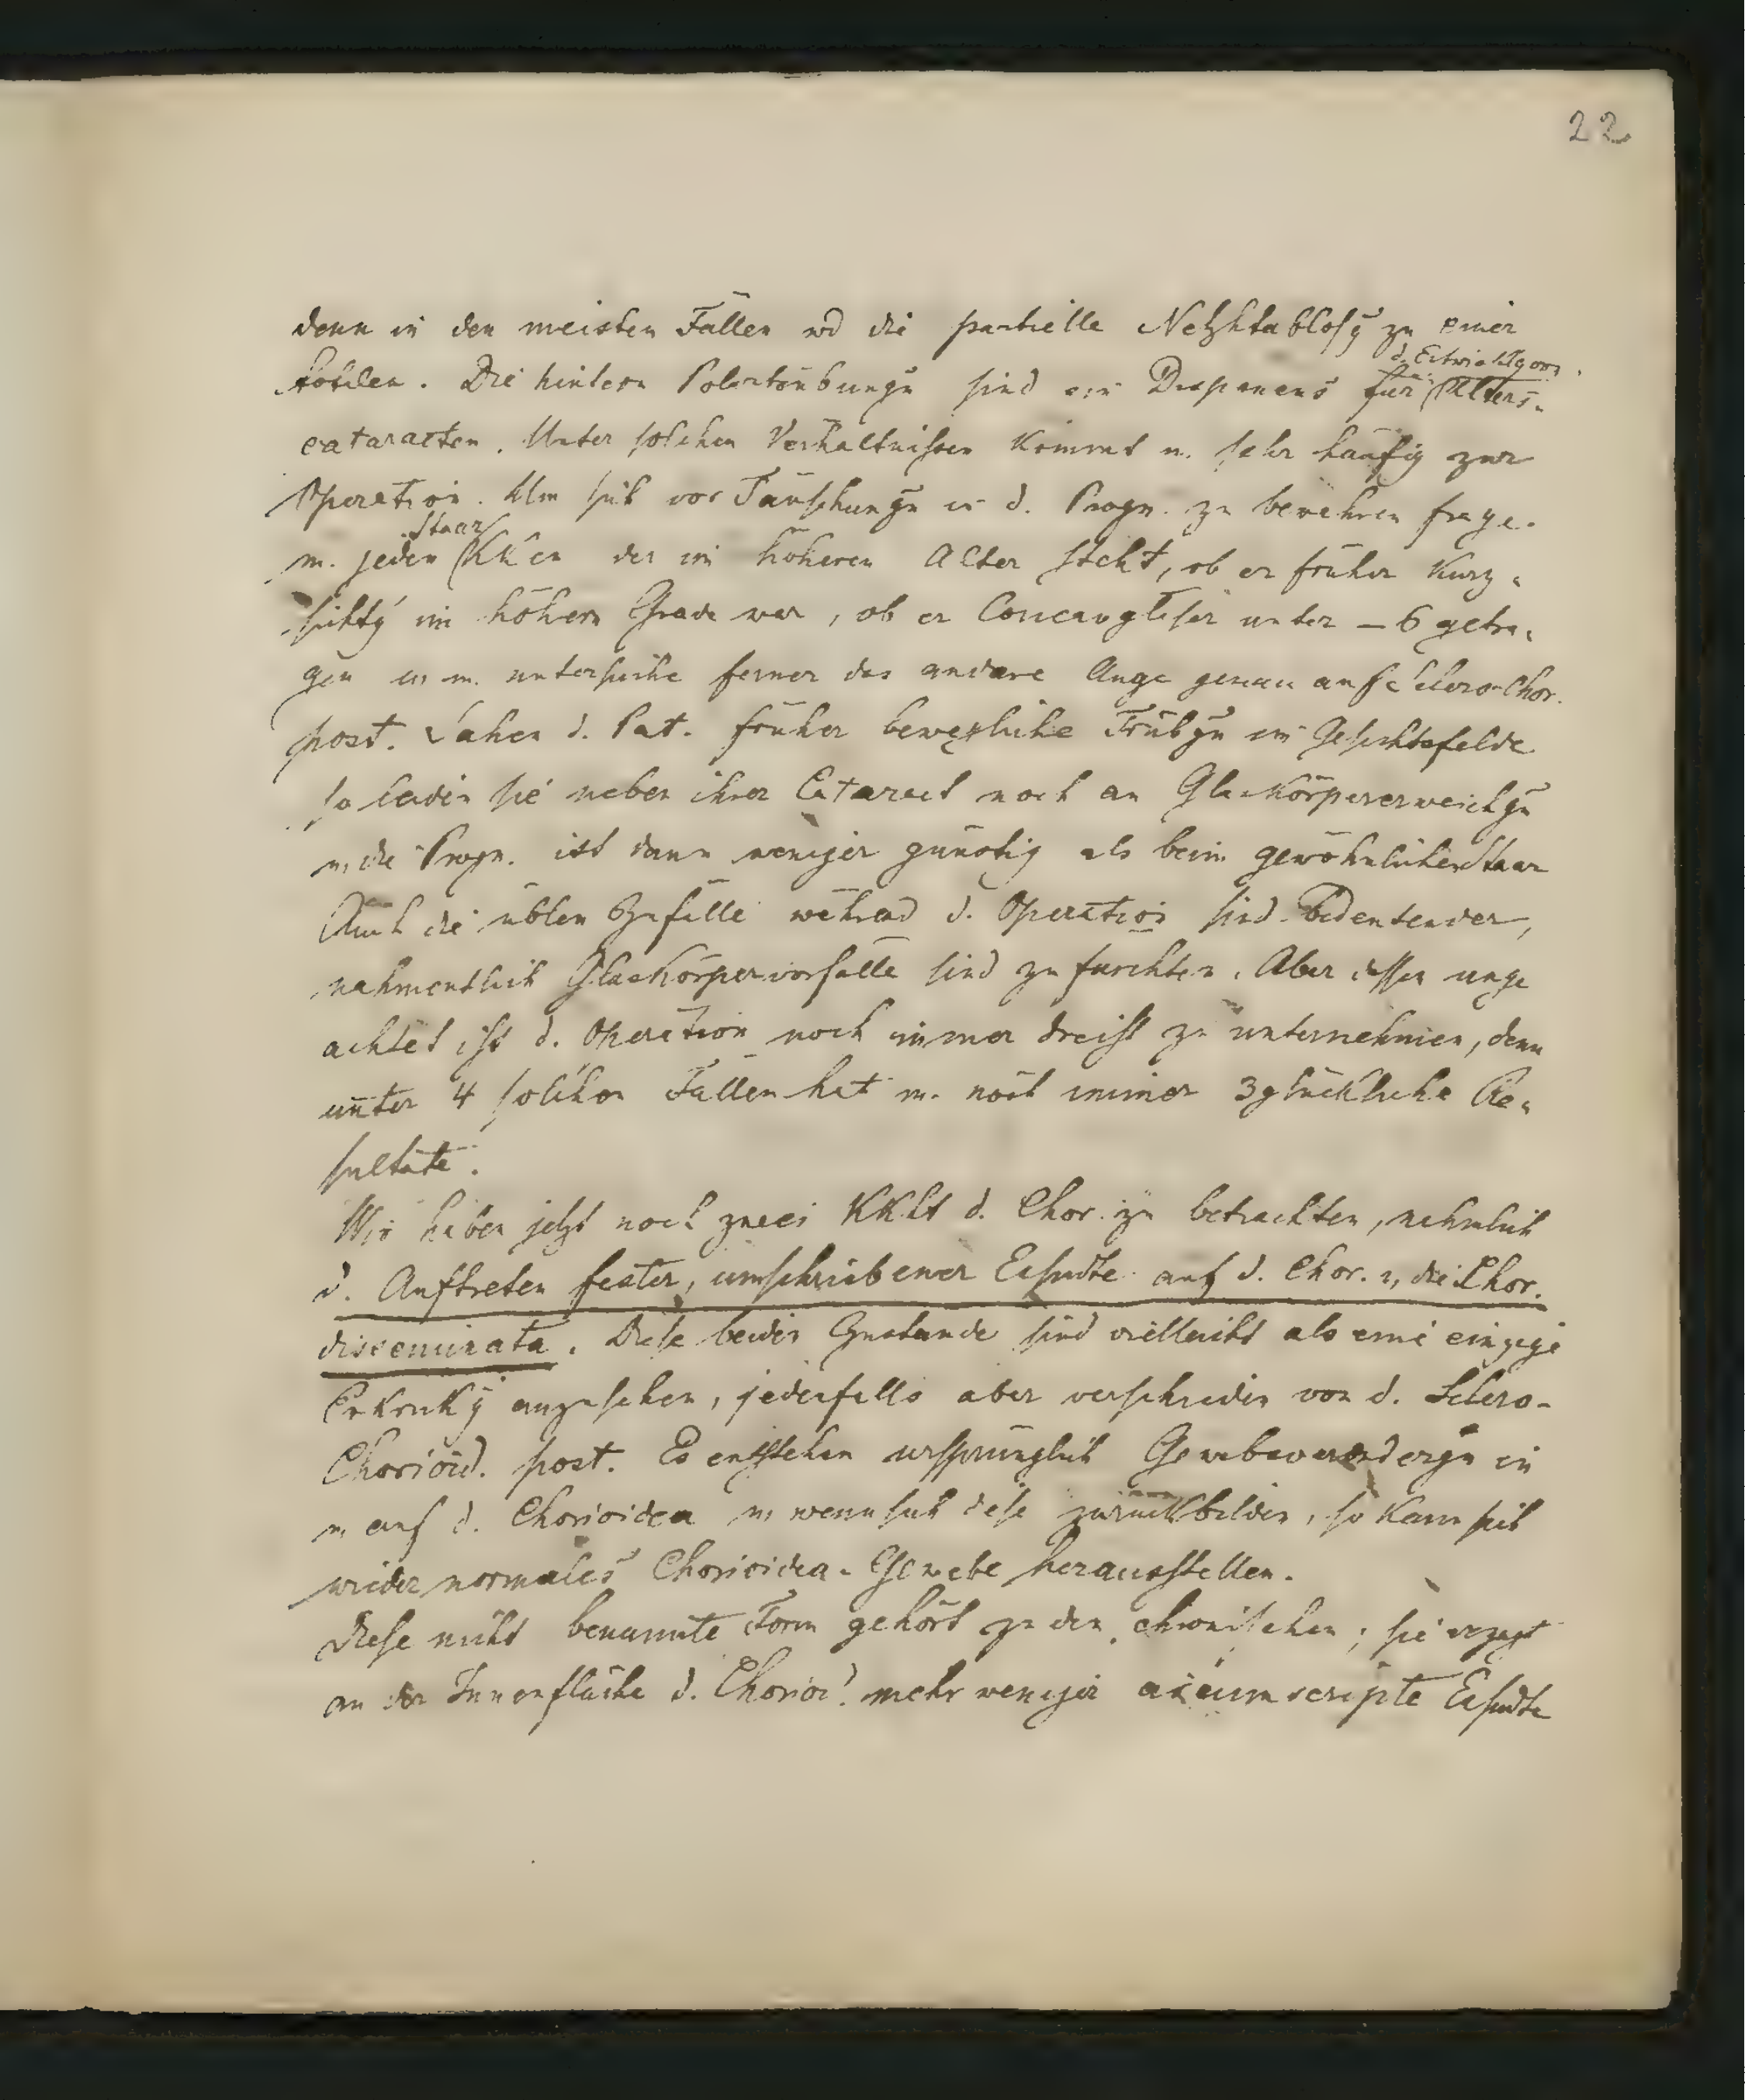 22
denn in den meisten Fällen wd die partielle Netzhtablösg zu einer
totalen. Die hintern Polartrübungn sind ein für d. Entwicklg von Alters-
cataracten. Unter solchen Verhältnissen kommt m. sehr häufig zur
Operation. Um sich vor Täuschungn in d. Progn. zu bewahren frage
m. jeden Staar Kken der im höheren Alter steht, ob er früher kurz-
sichtg im höhern Grade war, ob er Concavgläser unter – 6 getra-
gen u. m. untersuche ferner das andere Auge genau auf Sclero-Chor.
post. Sahen d. Pat. früher bewegliche Trübgn im Gesichtsfelde
so leiden sie neben ihrer Cataract noch an Glaskörpererweichgn
u. die Progn. ist dann weniger günstig als beim gewöhnlichen Staar
Auch die üblen Zufälle während d. Operation sind bedeutender,
nahmentlich Glaskörpervorfälle sind zu fürchten. Aber dessen unge
achtet ist d. Operation noch immer dreist zu unternehmen, denn
unter 4 solchen Fällen hat m. noch immer 3 glückliche Re-
sultate.
Wir haben jetzt noch zwei KKht d. Chor. zu betrachten, nehmlich
d. Auftreten fester, umschriebener Exsudte auf d. Chor. u. die Chor.
disseminata. Diese beiden Zustände sind vielleicht als eine einzige
Erkrnkg anzusehen, jedenfalls aber verschieden von d. Sclero-
Chorioid. post. Es entstehen ursprünglich Gewebeverändergn in
u. auf d. Chorioidea u. wenn sich diese zurückbilden, so kann sich
wieder normales Chorioidea-Gewebe herausstellen.
Diese nicht benannte Form gehört zu den chronischen; sie erzgt
an der Innenfläche d. Chorioid. mehr weniger circumscripte Exsudte